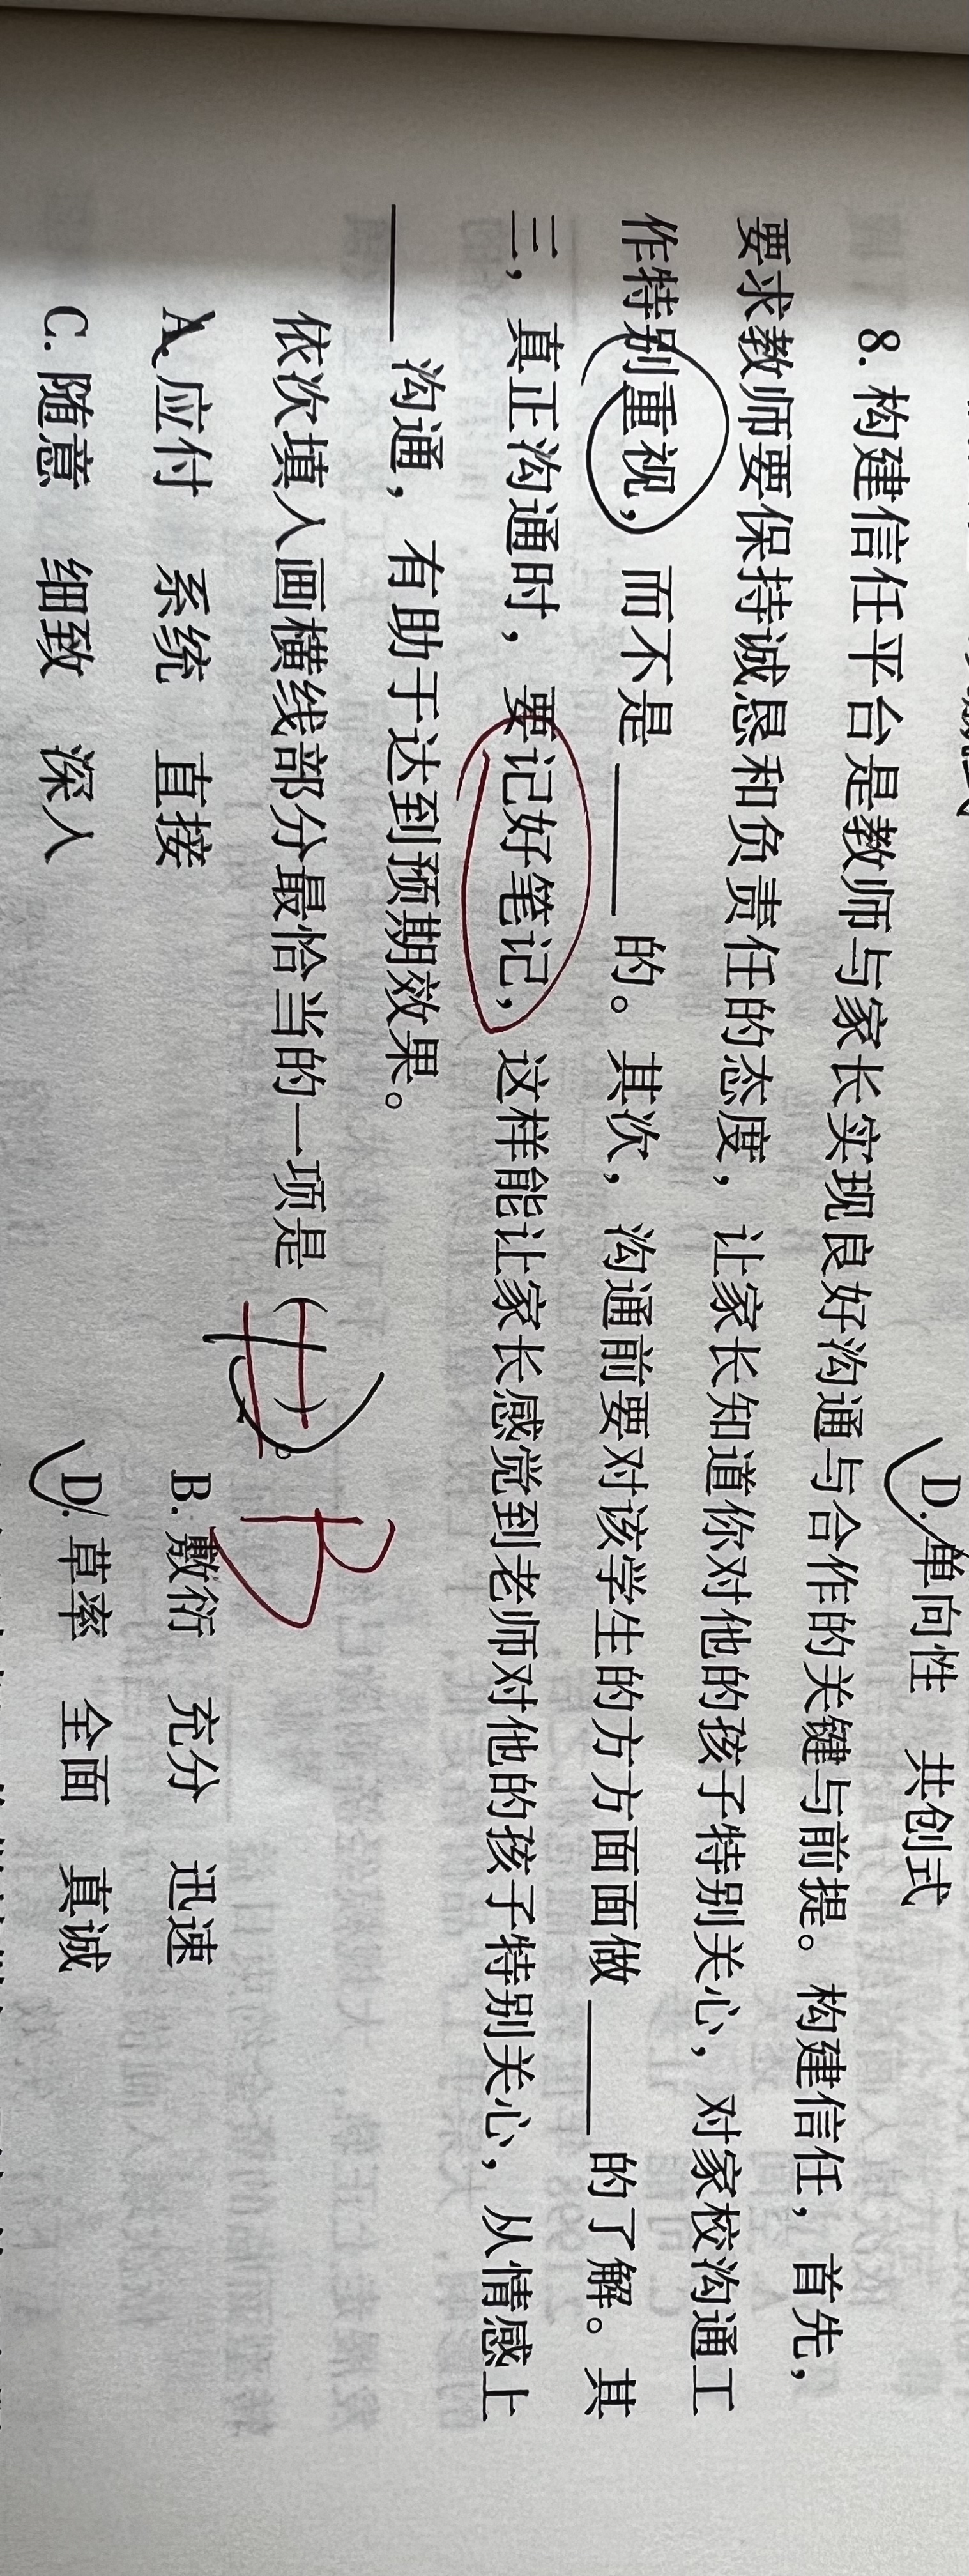 D. 单向性 共创式
8. 构建信任平台是教师与家长实现良好沟通与合作的关键与前提。构建信任，首先，
要求教师要保持诚恳和负责任的态度，让家长知道你对他的孩子特别关心，对家校沟通工
作特别重视，而不是______的。其次，沟通前要对该学生的方方面面做______的了解。其
三，真正沟通时，要记好笔记，这样能让家长感觉到老师对他的孩子特别关心，从情感上
______沟通，有助于达到预期效果。
依次填入画横线部分最恰当的一项是（ ）。
B
A. 应付 系统 直接
B. 敷衍 充分 迅速
C. 随意 细致 深入
D. 草率 全面 真诚